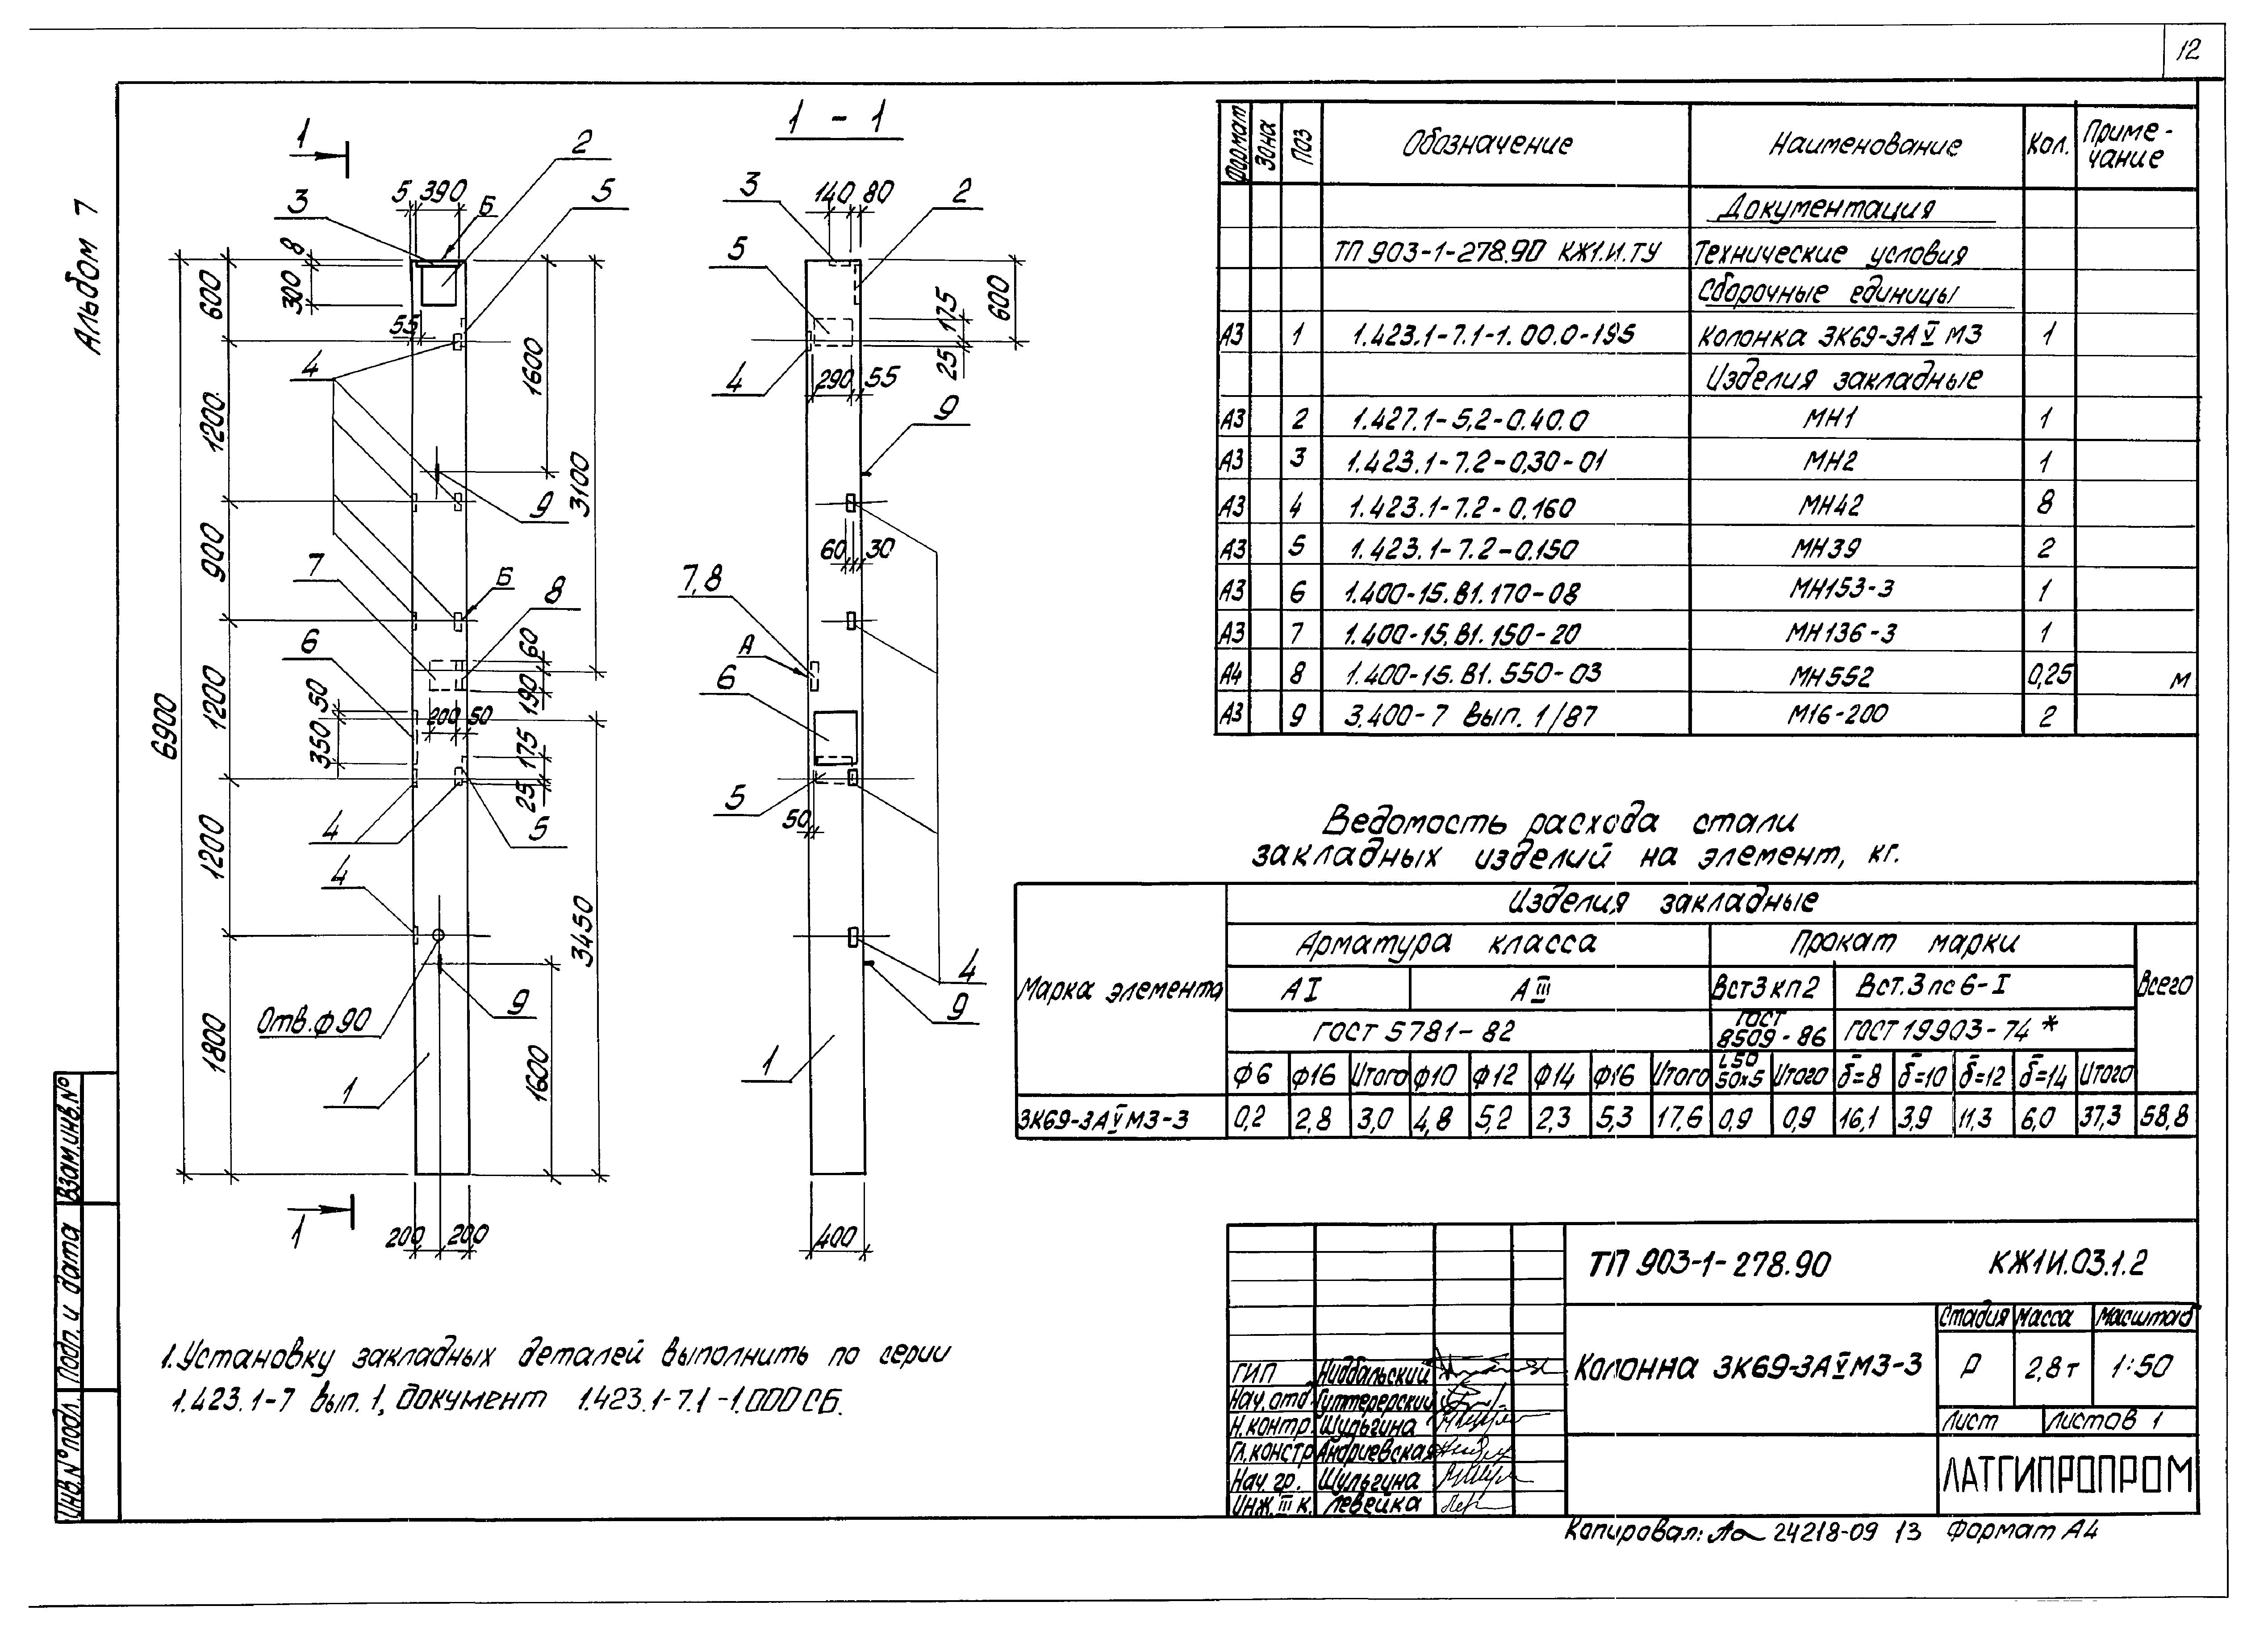 12
Альбом 7
1
1 - 1
2
3
5
5 390
Б
8
300
600
55
4
1200
1600
3100
9
900
7
Б
8
6
60
190
50
350
200 50
175
25
6900
1200
4
5
1200
4
3450
Отв.ф90
9
1800
1600
1
1
200 200
3
140 80
2
5
175
25
600
4
290 55
9
60 30
7,8
А
6
5
50
4
9
1
400
Формат Зона Поз Обозначение Наименование Кол. Приме-
чание
Документация
ТП 903-1-278.90 КЖ1.И.ТУ Технические условия
Сборочные единицы
А3 1 1.423.1-7.1-1.00.0-195 Колонка 3К69-3АV М3 1
Изделия закладные
А3 2 1.427.1-5,2-0.40.0 МН1 1
А3 3 1.423.1-7.2-0,30-01 МН2 1
А3 4 1.423.1-7.2-0.160 МН42 8
А3 5 1.423.1-7.2-0.150 МН39 2
А3 6 1.400-15.В1.170-08 МН153-3 1
А3 7 1.400-15.В1.150-20 МН136-3 1
А4 8 1.400-15.В1.550-03 МН552 0,25 м
А3 9 3.400-7 Вып. 1/87 М16-200 2
Ведомость расхода стали
закладных изделий на элемент, кг.
Марка элемента
Изделия закладные
Арматура класса Прокат марки Всего
АI АIII Вст3кп2 Вст.3пс6-I
ГОСТ 5781-82 ГОСТ 8509-86 ГОСТ 19903-74*
Ф6 Ф16 Итого Ф10 Ф12 Ф14 Ф16 Итого L50 50х5 Итого δ=8 δ=10 δ=12 δ=14 Итого
3К69-3АV М3-3 0,2 2,8 3,0 4,8 5,2 2,3 5,3 17,6 0,9 0,9 16,1 3,9 11,3 6,0 37,3 58,8
1. Установку закладных деталей выполнить по серии
1.423.1-7 вып. 1, документ 1.423.1-7.1-1.000СБ.
ТП 903-1-278.90 КЖ1И.03.1.2
Колонна 3К69-3АV М3-3
Стадия Масса Масштаб
Р 2,8т 1:50
Лист Листов 1
ЛАТГИПРОПРОМ
ГИП Ниддальский
Нач. отд. Гуттерерский
Н.контр. Шульгина
Гл.констр Андриевская
Нач. гр. Шульгина
Инж. III к. Левейка
Копировал: 24218-09 13 Формат А4
Взам.инв.№
Подп. и дата
Инв.№подл.